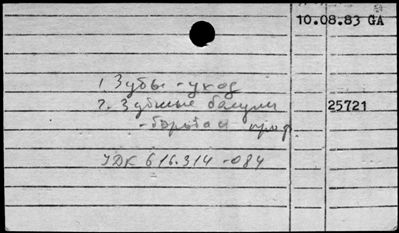 10.08.83 GA
1. Зубы - уход
2. Зубные бляшки
25721
- борьба и проф.
УДК 616.314-084